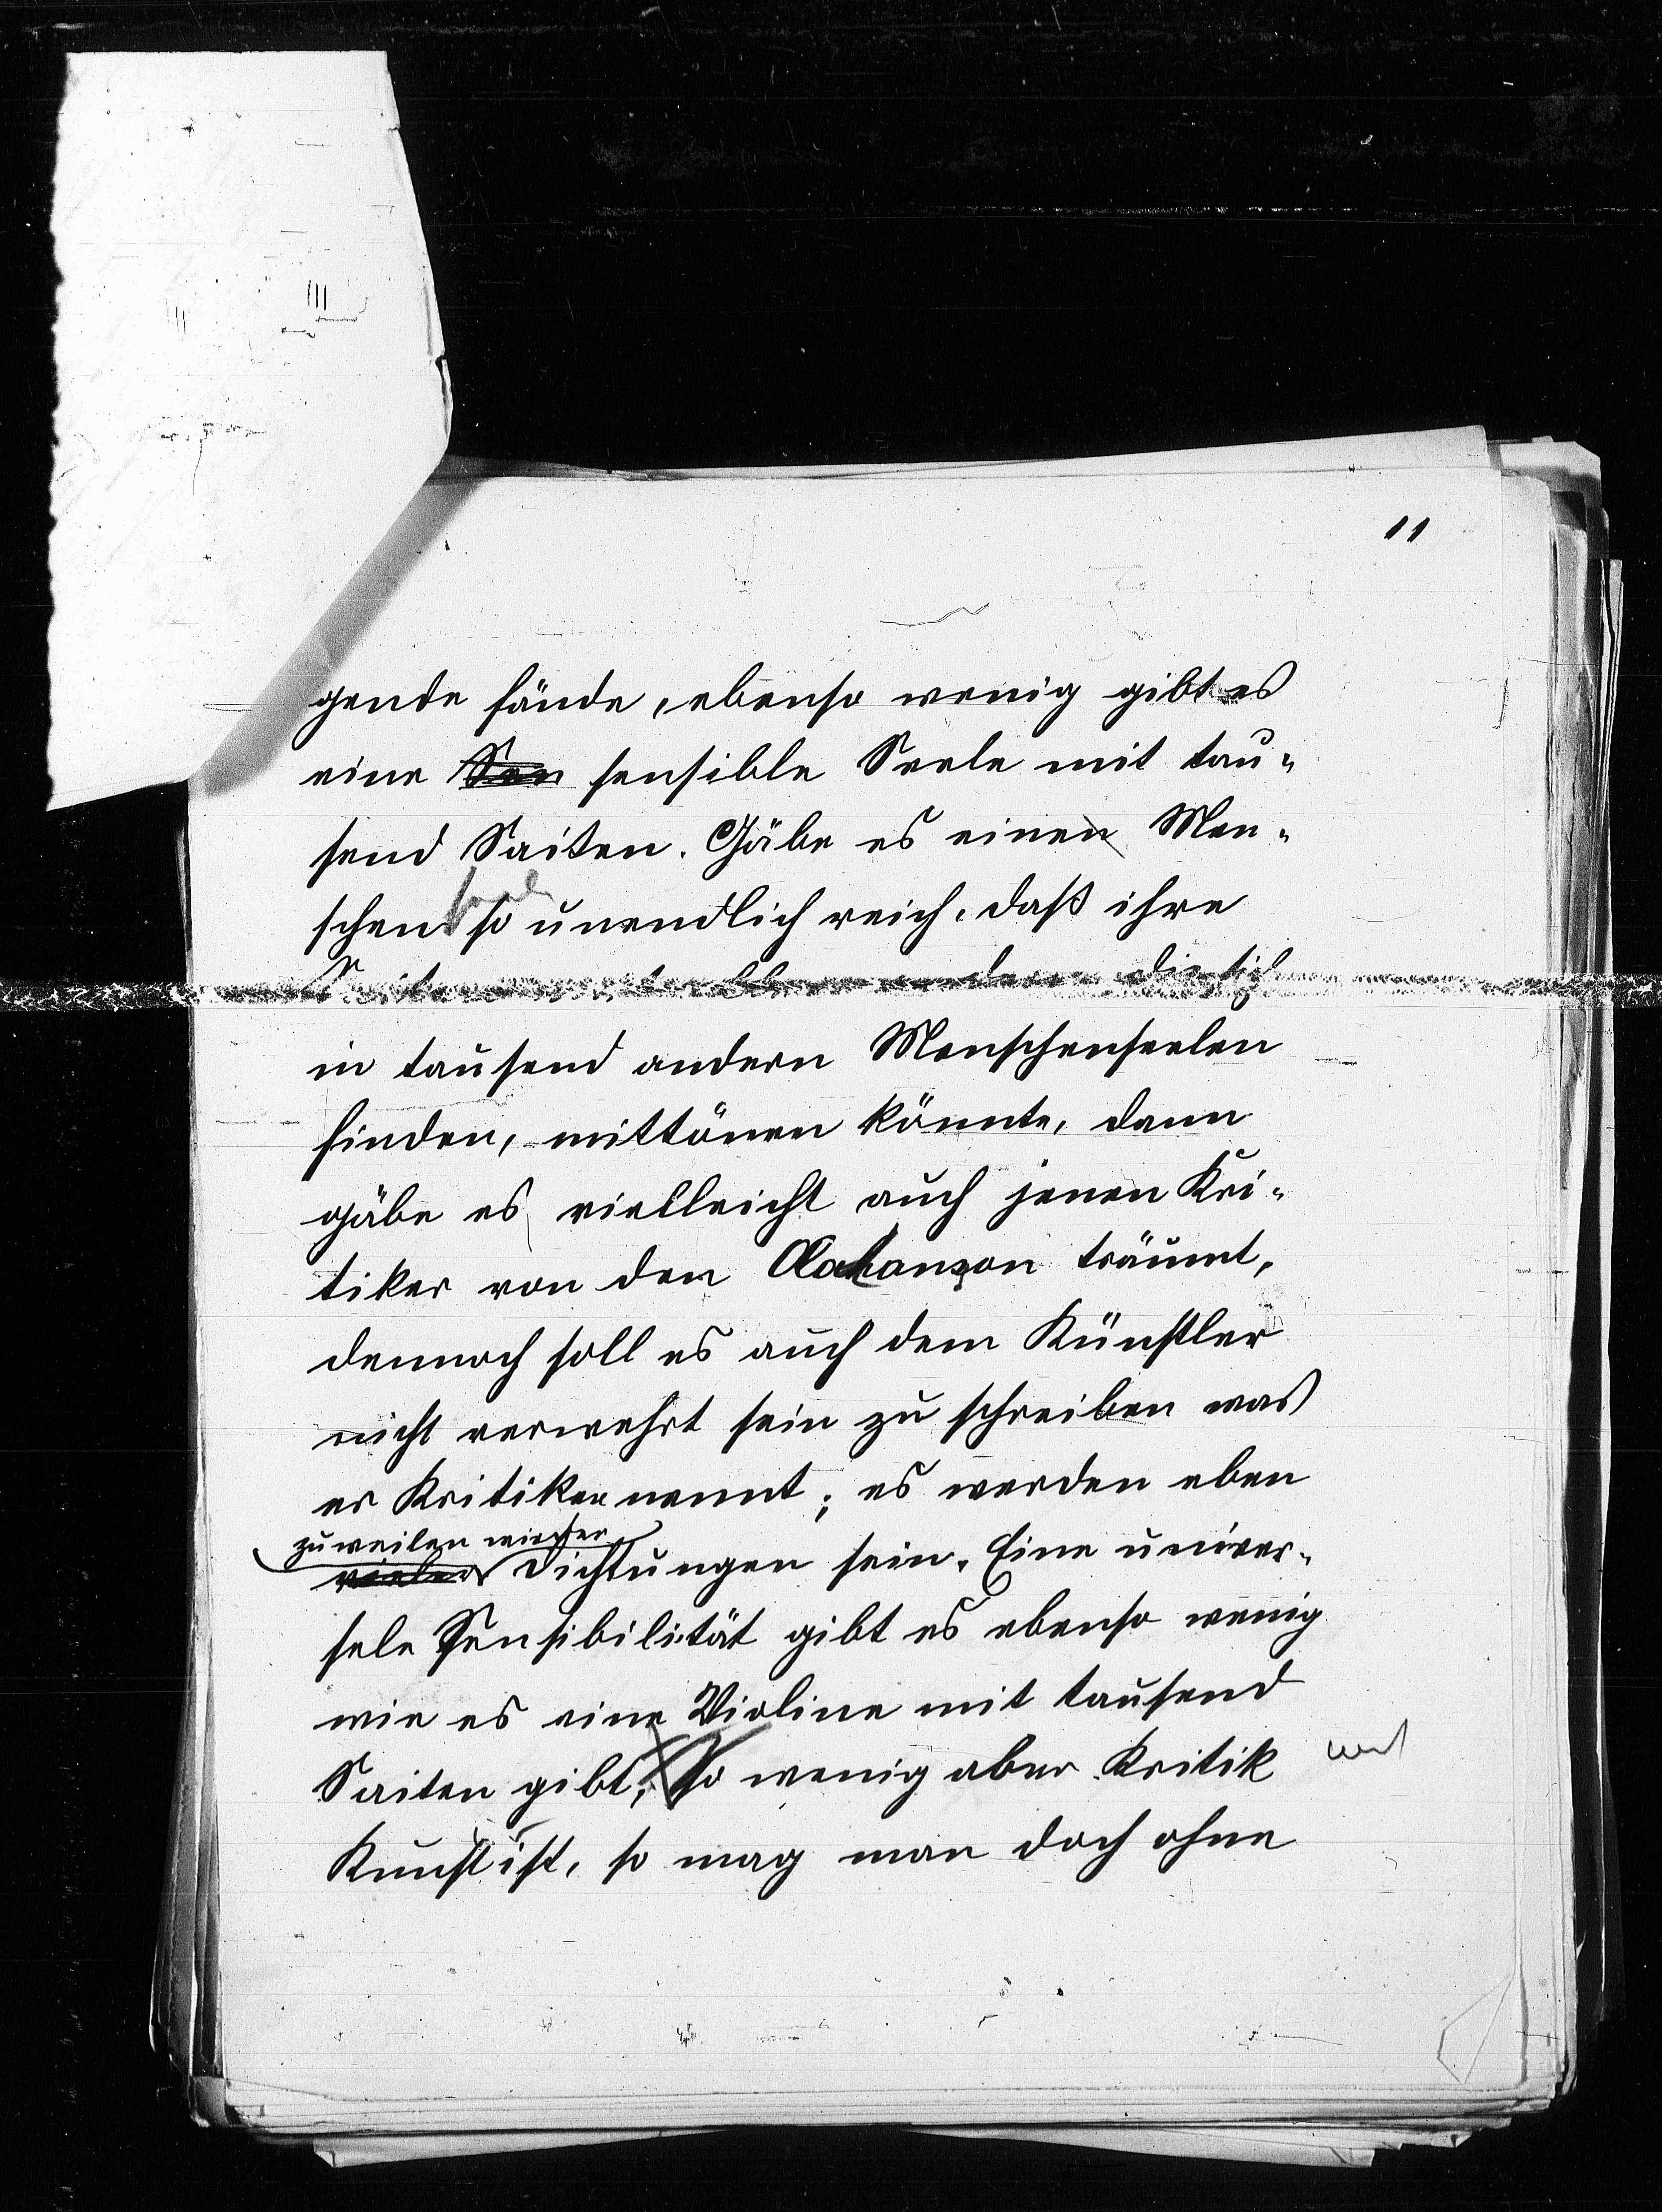 11
gende fände, ebenso wenig gibt es
eine Sen sensible Seele mit tau-
send Saiten. Gäbe es einen Men-
schen so unendlich reich, daß ihre
Saiten die sich
in tausend andern Menschenseelen
finden, mittönen könnte, dann
gäbe es vielleicht auch jenen Kri-
tiker von dem Ola Hansson träumt,
dennoch soll es auch dem Künstler
nicht verwehrt sein zu schreiben was
er Kritiken nennt; es werden eben
zuweilen wieder
Dichtungen sein. Eine univer-
sele Sensibilität gibt es ebenso wenig
wie es eine Violine mit tausend
Saiten gibt; So wenig aber Kritik
Kunst ist, so mag man doch ohne